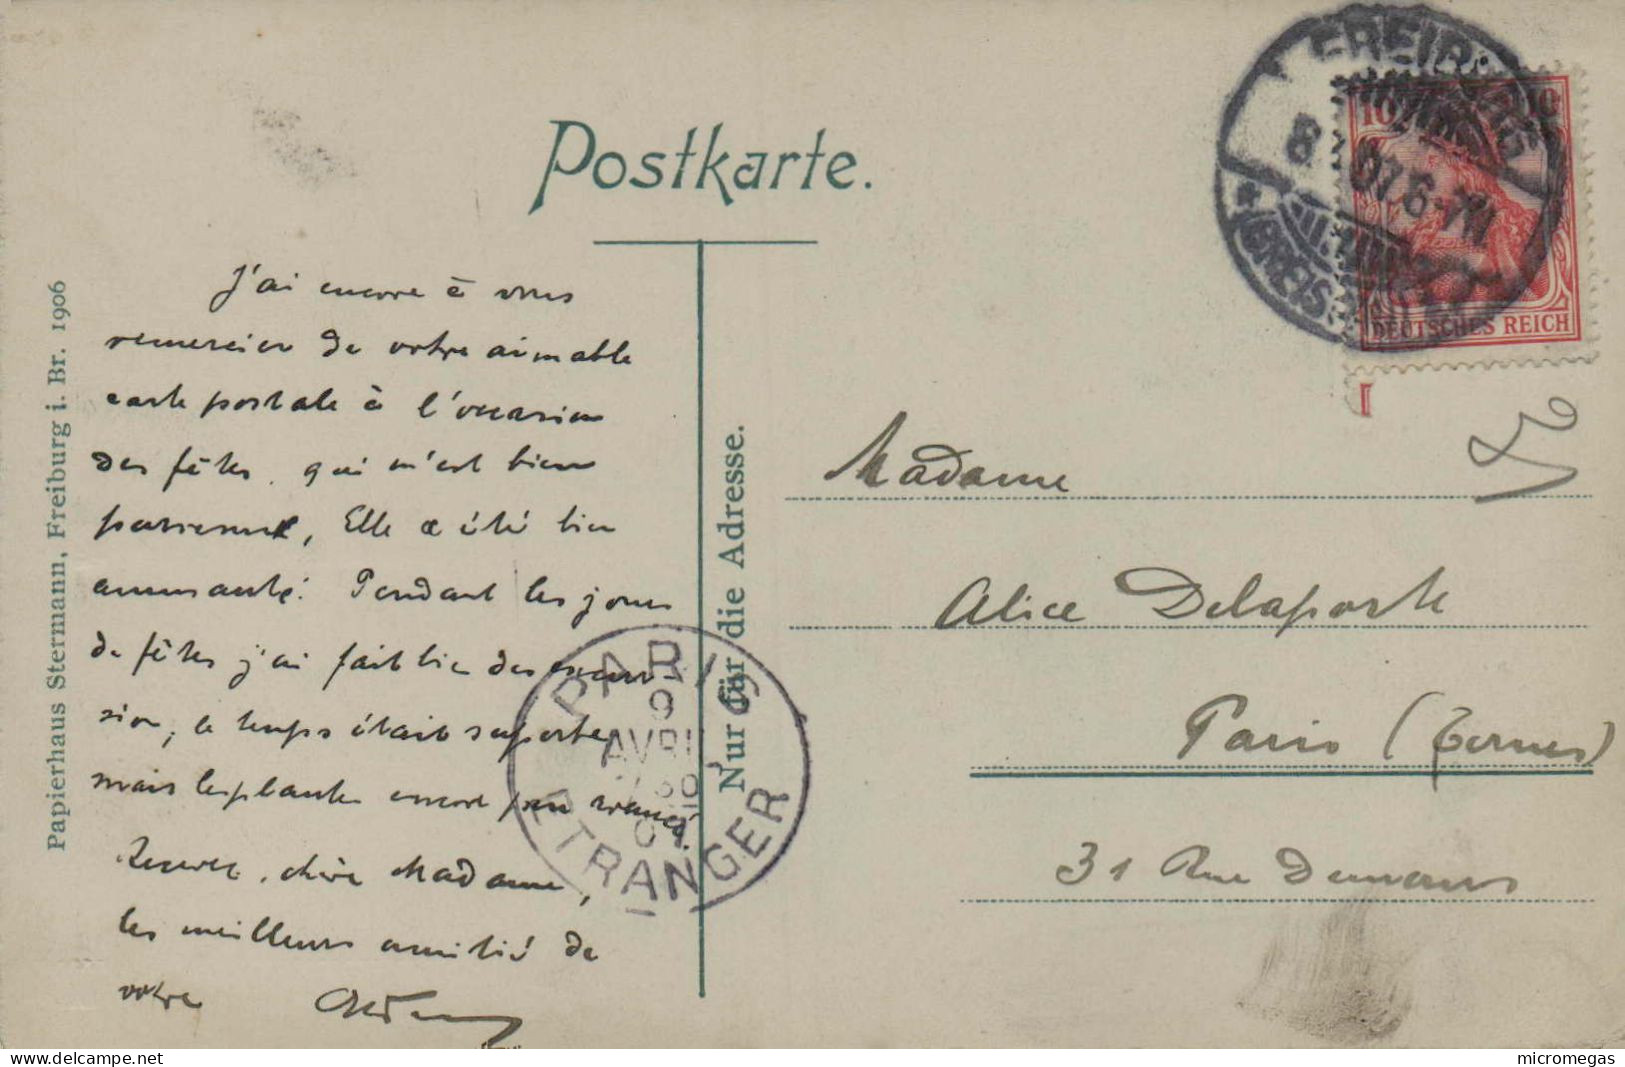 Postkarte.
FREIBURG
8 07.6-7N
BREIS
10 10
DEUTSCHES REICH
J'ai encore à vous
remercier de votre aimable
carte postale à l'occasion
des fêtes, qui m'est bien
parvenue, Elle a été bien
amusante. Pendant les jours
de fêtes j'ai fait bien des excur-
sion, le temps était superbe
mais les plantes encore peu avancé.
Recevez, chère Madame,
les meilleurs amitié de
votre
Papierhaus Stermann, Freiburg i. Br. 1906
Nur für die Adresse.
PARIS
9
AVRIL
30
07
ETRANGER
Madame
Alice Delaporte
Paris (Ternes)
31 Rue Demours
delcampe.net
micromegas